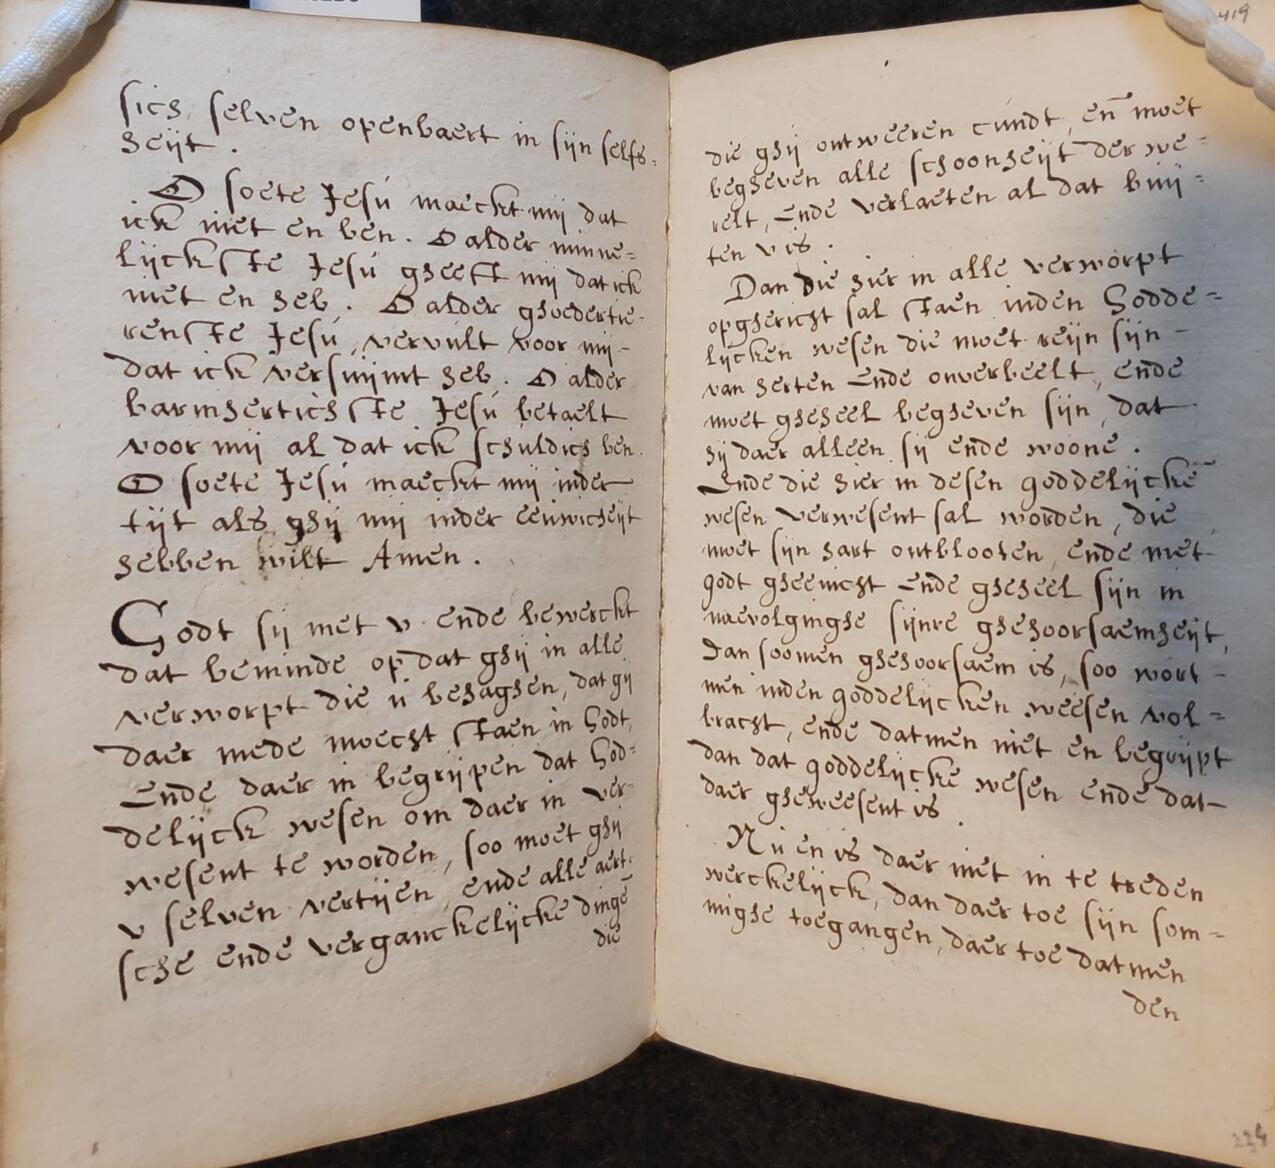 sich selven openbaert in sijn selfs-
heijt.
O soete Jesú maeckt mij dat
ick niet en ben. O alder minne=
lijckste Jesú gheeft mij dat ick
niet en heb. O alder ghoedertie-
renste Jesú, vervúlt voor mij-
dat ick versuijmt heb. O alder
barmhertichste Jesú betaelt
voor mij al dat ick schúldich ben.
O soete Jesú maeckt mij inder
tijt als ghij mij inder eeuwicheijt
hebben wilt Amen.
Godt sij met v ende bewerckt
dat beminde op dat ghij in alle
verworpt die ú behaghen, dat gij
daer mede moecht staen in Godt,
Ende daer in begrijpen dat God=
delijck wesen om daer in ver-
wesent te worden, soo moet ghij
v selven vertijen, ende alle aert-
sche ende verganckelijcke dingē
die
419
die ghij ontweeren cúndt, eñ moet
begheven alle schoonheijt der we=
relt, Ende verlaeten al dat buij=
ten v is.
Dan die hier in alle verworpt
opghericht sal staen inden Godde=
lijcken wesen die moet reijn sijn-
van herten Ende onverbeelt, ende
moet gheheel begheven sijn, dat
hij daer alleen sij ende woone.
Ende die hier in desen goddelijckē
wesen verwesent sal worden, die
moet sijn hart ontblooten, ende met
godt gheenicht Ende gheheel sijn in
naevolginghe sijnre ghehoorsaemheijt,
Dan soomen ghehoorsaem is, soo wort-
men inden goddelijcken weesen vol=
bracht, ende datmen niet en begrijpt
dan dat goddelijcke wesen ende dat-
daer gheweesent is.
Nú en is daer niet in te treden
werckelijck, dan daer toe sijn som=
mighe toegangen, daer toe datmen
den